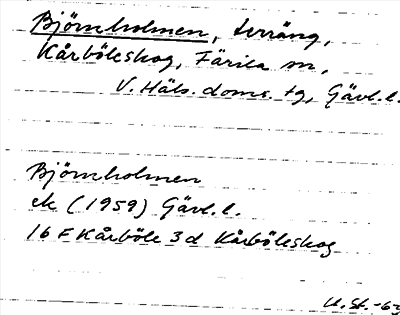 Björnholmen, terräng,
Kårböleskog, Färila sn,
V. Häls. doms. tg, Gävl. l.
Björnholmen
ek (1959) Gävl. l.
16 F Kårböle 3 d Kårböleskog
U. St. -63